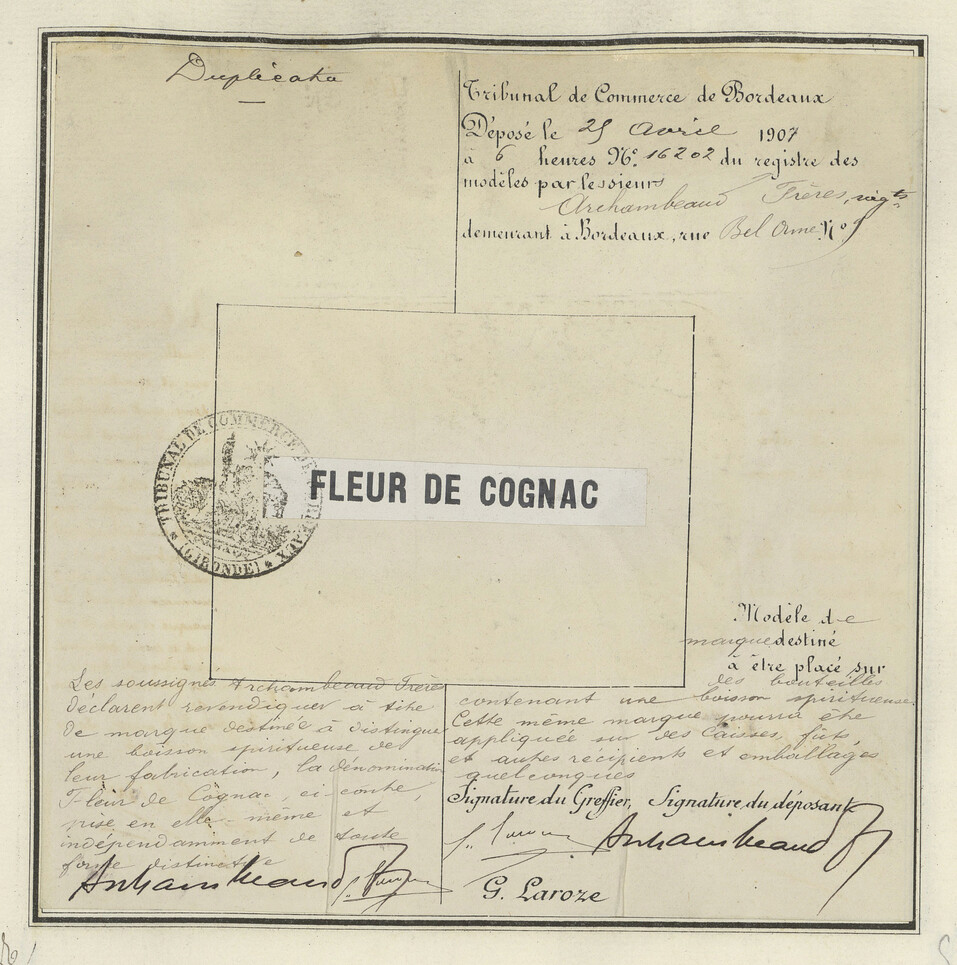 Duplicata
Tribunal de Commerce de Bordeaux
Déposé le 25 Avril 1907
à 6 heures N° 16202 du registre des
modèles par les sieurs
Archambeaud Frères, négts
demeurant à Bordeaux, rue Bel Orme N° 9
TRIBUNAL DE COMMERCE DE BORDEAUX
(GIRONDE)
FLEUR DE COGNAC
Modèle de
marque destiné
à être placé sur
des bouteilles
contenant une boisson spiritueuse.
Cette même marque pourra être
appliquée sur des Caisses, fûts,
et autres récipients et emballages
quelconques
Les soussignés Archambeaud Frères
déclarent revendiquer à titre
de marque destinée à distinguer
une boisson spiritueuse de
leur fabrication, la dénomination
Fleur de Cognac, ci-contre,
prise en elle-même et
indépendamment de toute
forme distinctive
Signature du Greffier, Signature du déposant
Archambeaud
Archambeaud
G. Laroze